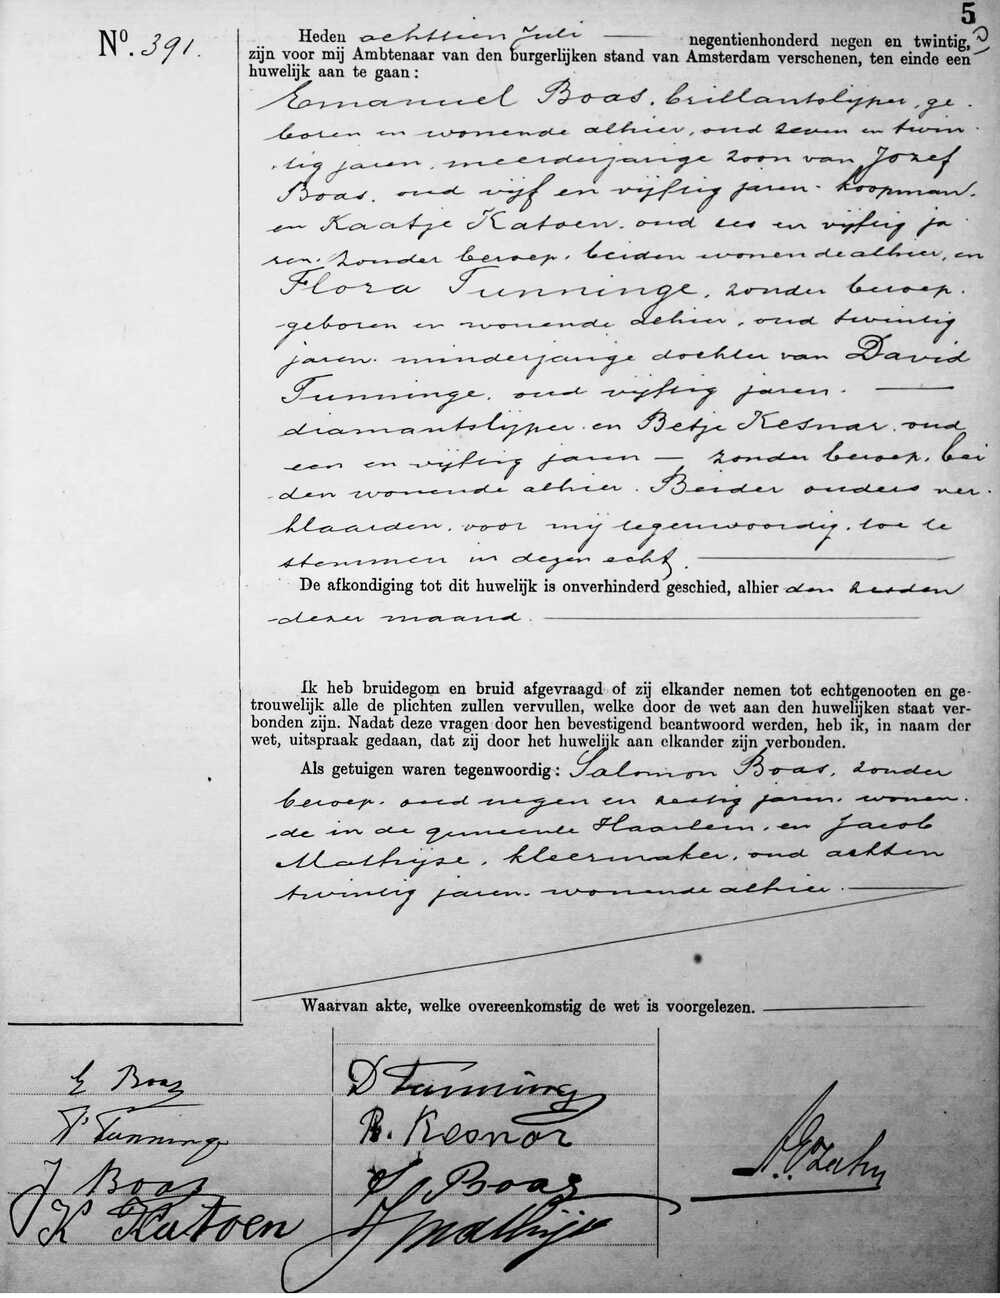 5
No. 391.
Heden achttien Juli — negentienhonderd negen en twintig,
zijn voor mij Ambtenaar van den burgerlijken stand van Amsterdam verschenen, ten einde een
huwelijk aan te gaan:
Emanuel Boas, brillantslijper, ge-
boren en wonende alhier, oud zeven en twin-
tig jaren, meerderjarige zoon van Jozef
Boas, oud vijf en vijftig jaren, koopman,
en Kaatje Katoen, oud zes en vijftig ja-
ren, zonder beroep, beiden wonende alhier, en
Flora Tunninge, zonder beroep,
geboren en wonende alhier, oud twintig
jaren, minderjarige dochter van David
Tunninge, oud vijftig jaren, —
diamantslijper en Betje Kesnar, oud
een en vijftig jaren — zonder beroep, bei-
den wonende alhier. Beider ouders ver-
klaarden, voor mij tegenwoordig, toe te
stemmen in dezen echt.
De afkondiging tot dit huwelijk is onverhinderd geschied, alhier den zesden
dezer maand.
Ik heb bruidegom en bruid afgevraagd of zij elkander nemen tot echtgenooten en ge-
trouwelijk alle de plichten zullen vervullen, welke door de wet aan den huwelijken staat ver-
bonden zijn. Nadat deze vragen door hen bevestigend beantwoord werden, heb ik, in naam der
wet, uitspraak gedaan, dat zij door het huwelijk aan elkander zijn verbonden.
Als getuigen waren tegenwoordig: Salomon Boas, zonder
beroep, oud negen en zestig jaren, wonen-
de in de gemeente Haarlem, en Jacob
Mathijse, kleermaker, oud acht en
twintig jaren, wonende alhier.
Waarvan akte, welke overeenkomstig de wet is voorgelezen.
E Boas
F Tunninge
J Boas
K Katoen
D Tunninge
B. Kesnar
S Boas
J Mathijse